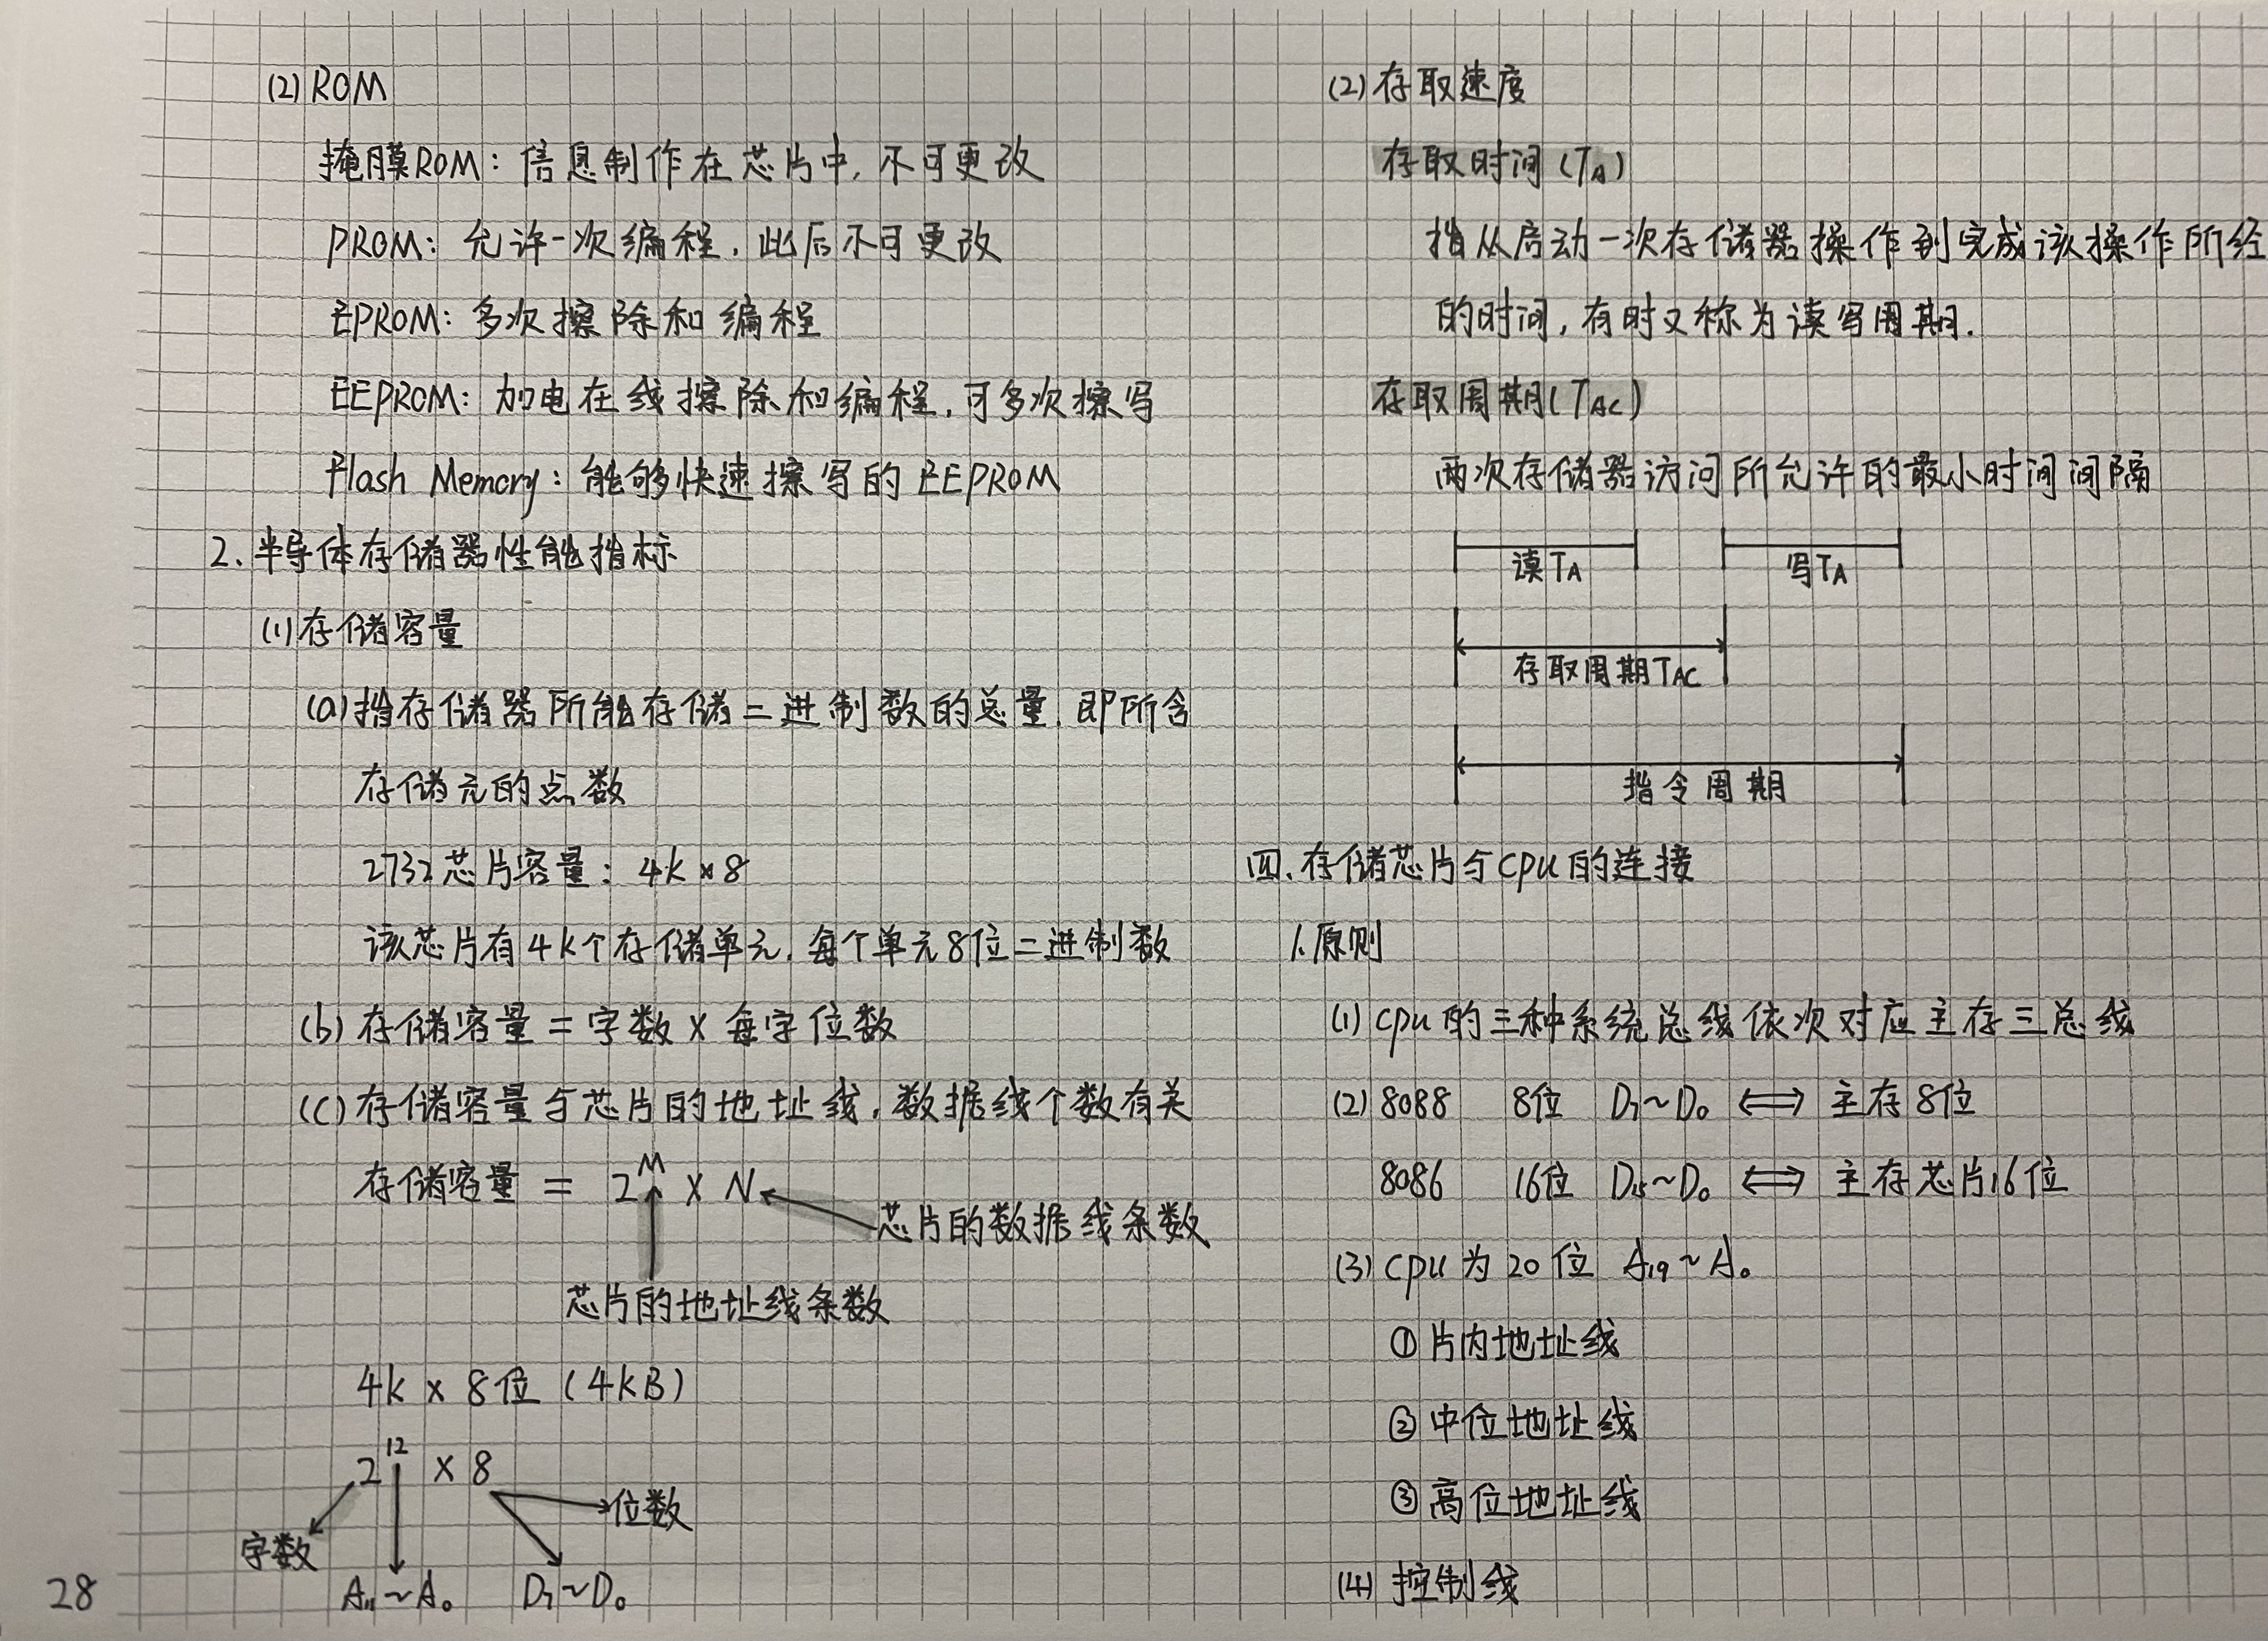 (2) ROM
掩膜ROM：信息制作在芯片中，不可更改
PROM：允许一次编程，此后不可更改
EPROM：多次擦除和编程
EEPROM：加电在线擦除和编程，可多次擦写
Flash Memory：能够快速擦写的EEPROM
2. 半导体存储器性能指标
(1) 存储容量
(a) 指存储器所能存储二进制数的总量，即所含
存储元的点数
2732芯片容量：4k×8
该芯片有4k个存储单元，每个单元8位二进制数
(b) 存储容量 = 字数 × 每字位数
(c) 存储容量与芯片的地址线，数据线个数有关
存储容量 = 2^M × N
芯片的数据线条数
芯片的地址线条数
4k × 8位 (4kB)
2^12 × 8
位数
字数
A11~A0 D7~D0
28
(2) 存取速度
存取时间(TA)
指从启动一次存储器操作到完成该操作所经
的时间，有时又称为读写周期.
存取周期(TAC)
两次存储器访问所允许的最小时间间隔
读TA 写TA
存取周期TAC
指令周期
四. 存储芯片与CPU的连接
1. 原则
(1) CPU的三种系统总线依次对应主存三总线
(2) 8088 8位 D7~D0 ⟺ 主存8位
8086 16位 D15~D0 ⟺ 主存芯片16位
(3) CPU为20位 A19~A0
① 片内地址线
② 中位地址线
③ 高位地址线
(4) 控制线